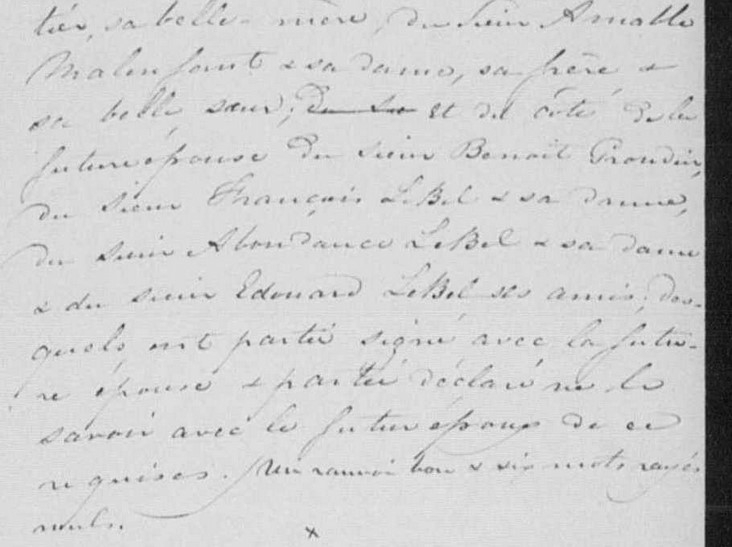 tier, sa belle-mère, du Sieur Amable
Malenfant & sa dame, sa frère &
sa belle sœur, du Sr Et du côté de la
future épouse du sieur Benoit Grondin,
du sieur François LeBel & sa dame,
du sieur Abondance LeBel & sa dame
& du sieur Edouard LeBel ses amis, des-
quels ont partie signé avec la futu-
re épouse & partie déclaré ne le
savoir avec le futur époux de ce
requises. Un renvoi bon & six mots rayés
nuls.
x